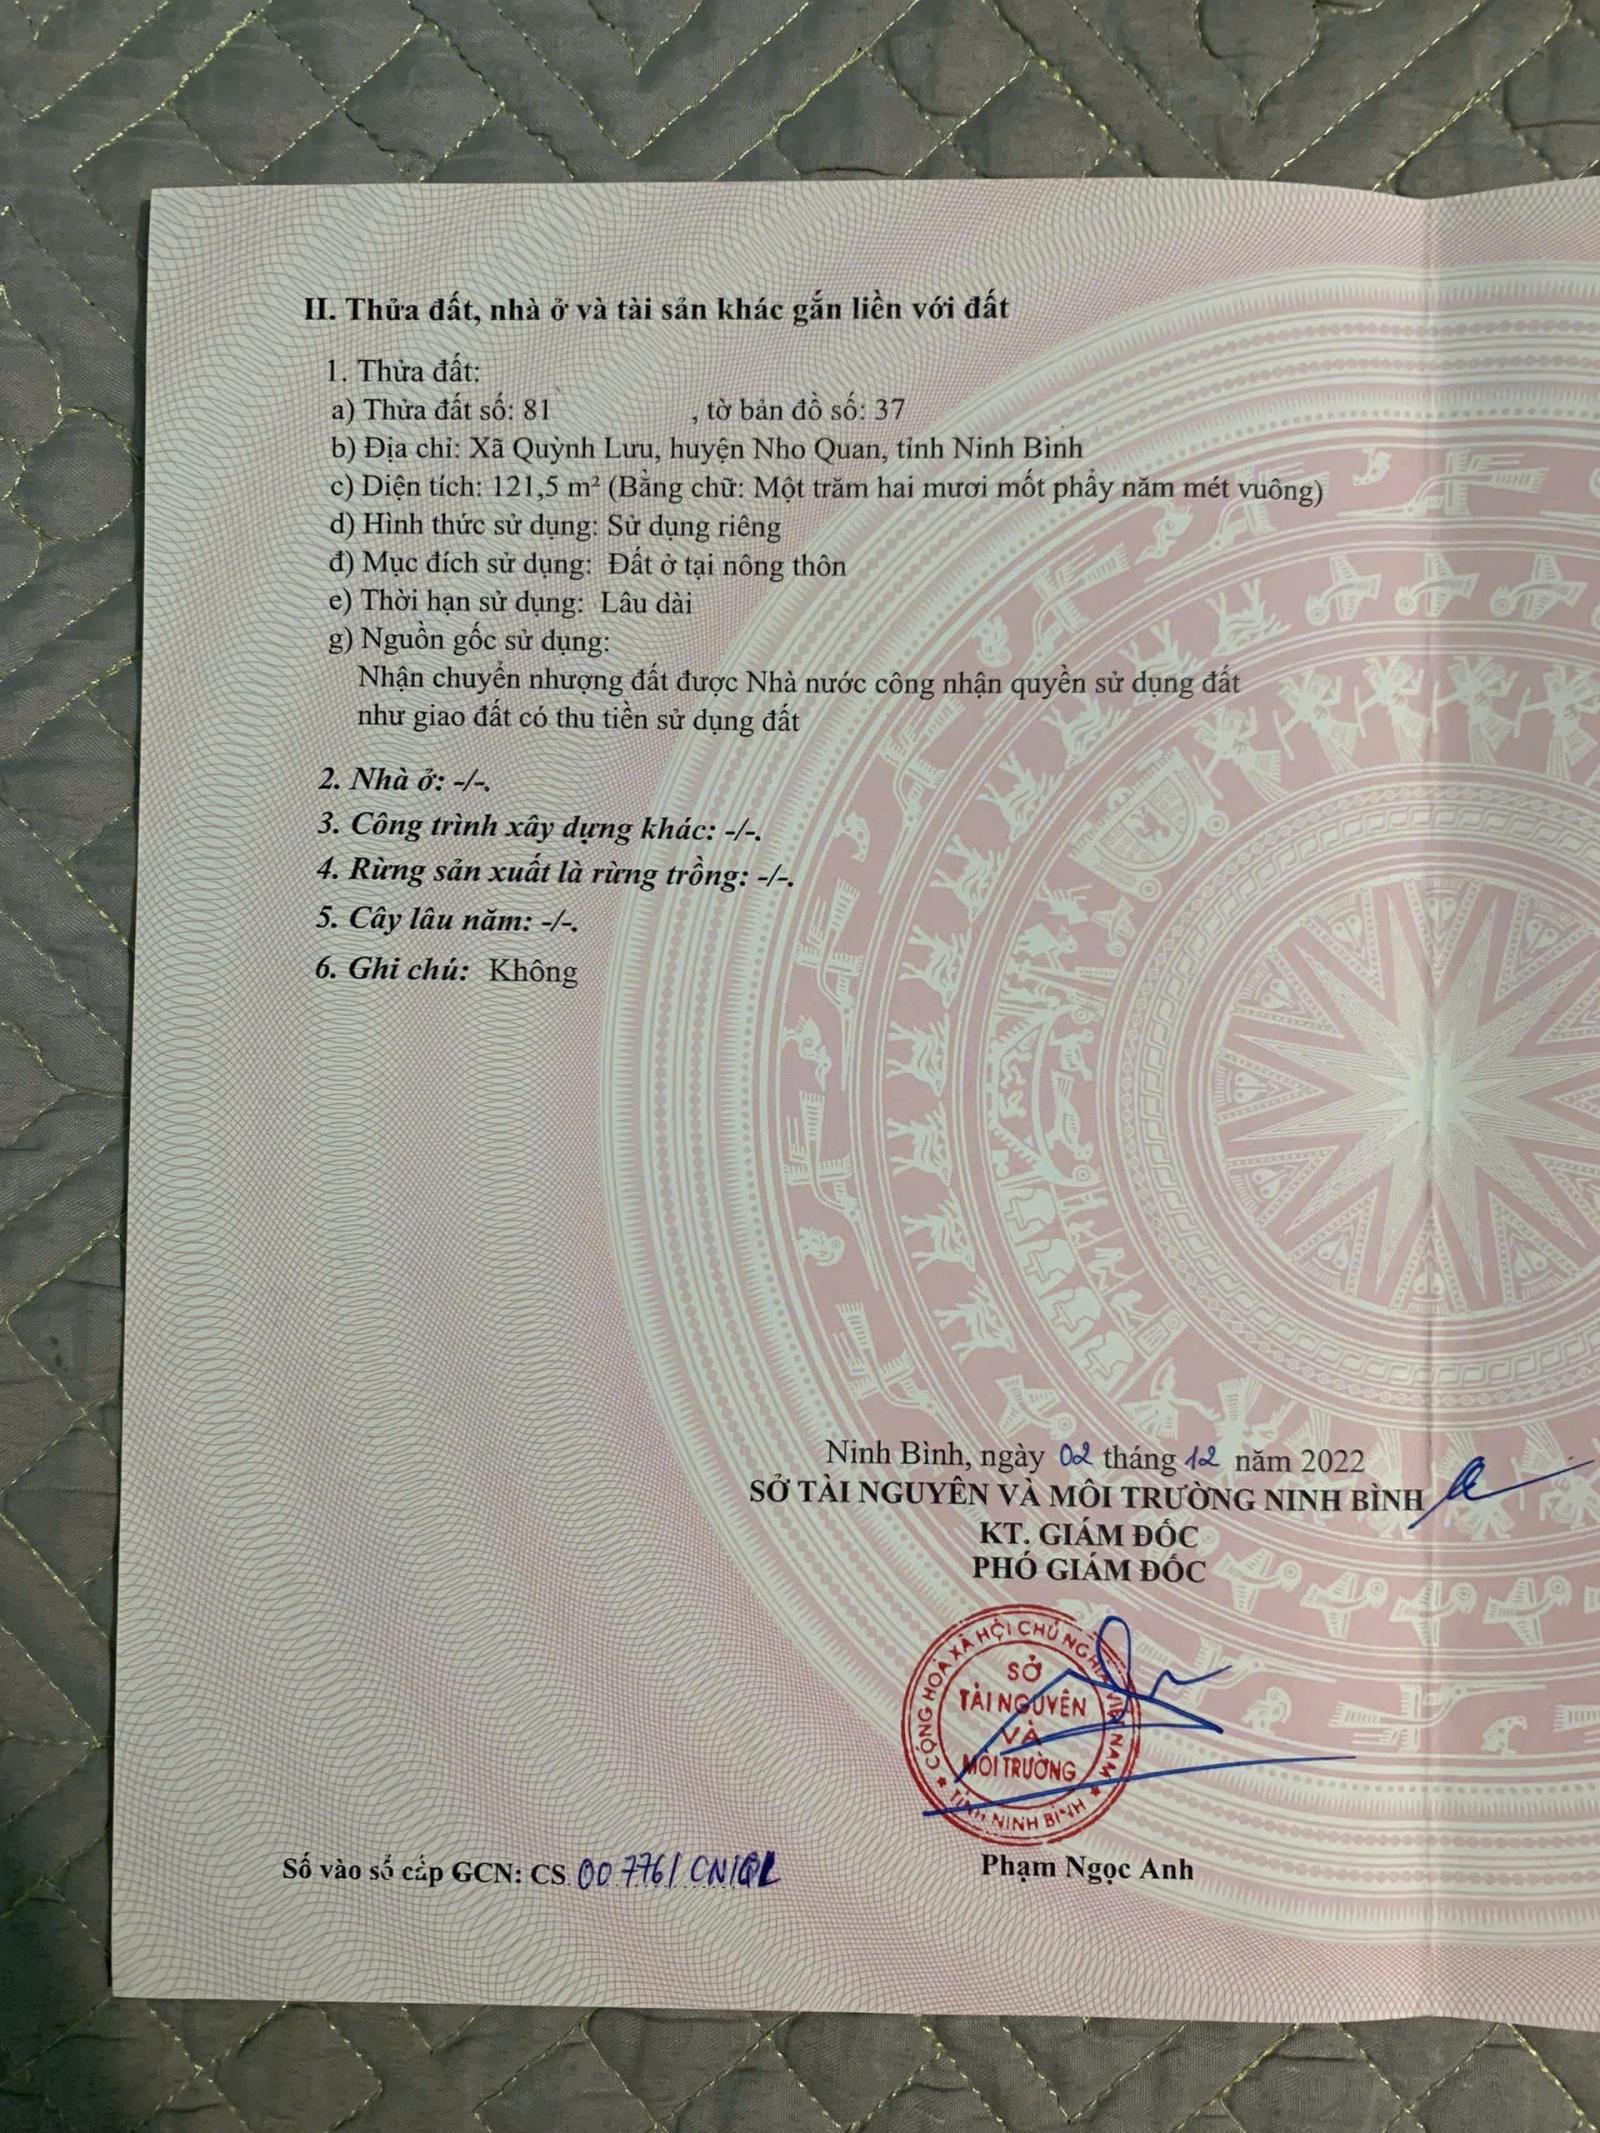 II. Thửa đất, nhà ở và tài sản khác gắn liền với đất
1. Thửa đất:
a) Thửa đất số: 81 , tờ bản đồ số: 37
b) Địa chỉ: Xã Quỳnh Lưu, huyện Nho Quan, tỉnh Ninh Bình
c) Diện tích: 121,5 m² (Bằng chữ: Một trăm hai mươi mốt phẩy năm mét vuông)
d) Hình thức sử dụng: Sử dụng riêng
đ) Mục đích sử dụng: Đất ở tại nông thôn
e) Thời hạn sử dụng: Lâu dài
g) Nguồn gốc sử dụng:
Nhận chuyển nhượng đất được Nhà nước công nhận quyền sử dụng đất
như giao đất có thu tiền sử dụng đất
2. Nhà ở: -/-.
3. Công trình xây dựng khác: -/-.
4. Rừng sản xuất là rừng trồng: -/-.
5. Cây lâu năm: -/-.
6. Ghi chú: Không
Ninh Bình, ngày 02 tháng 12 năm 2022
SỞ TÀI NGUYÊN VÀ MÔI TRƯỜNG NINH BÌNH
KT. GIÁM ĐỐC
PHÓ GIÁM ĐỐC
CỘNG HOÀ XÃ HỘI CHỦ NGHĨA VIỆT NAM
SỞ
TÀI NGUYÊN
VÀ
MÔI TRƯỜNG
TỈNH NINH BÌNH
Phạm Ngọc Anh
Số vào sổ cấp GCN: CS